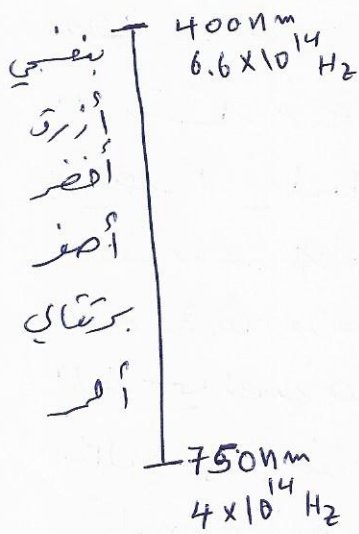 400nm
6.6×10¹⁴ Hz
بنفسجي
أزرق
أخضر
أصفر
برتقالي
أحمر
750nm
4×10¹⁴ Hz